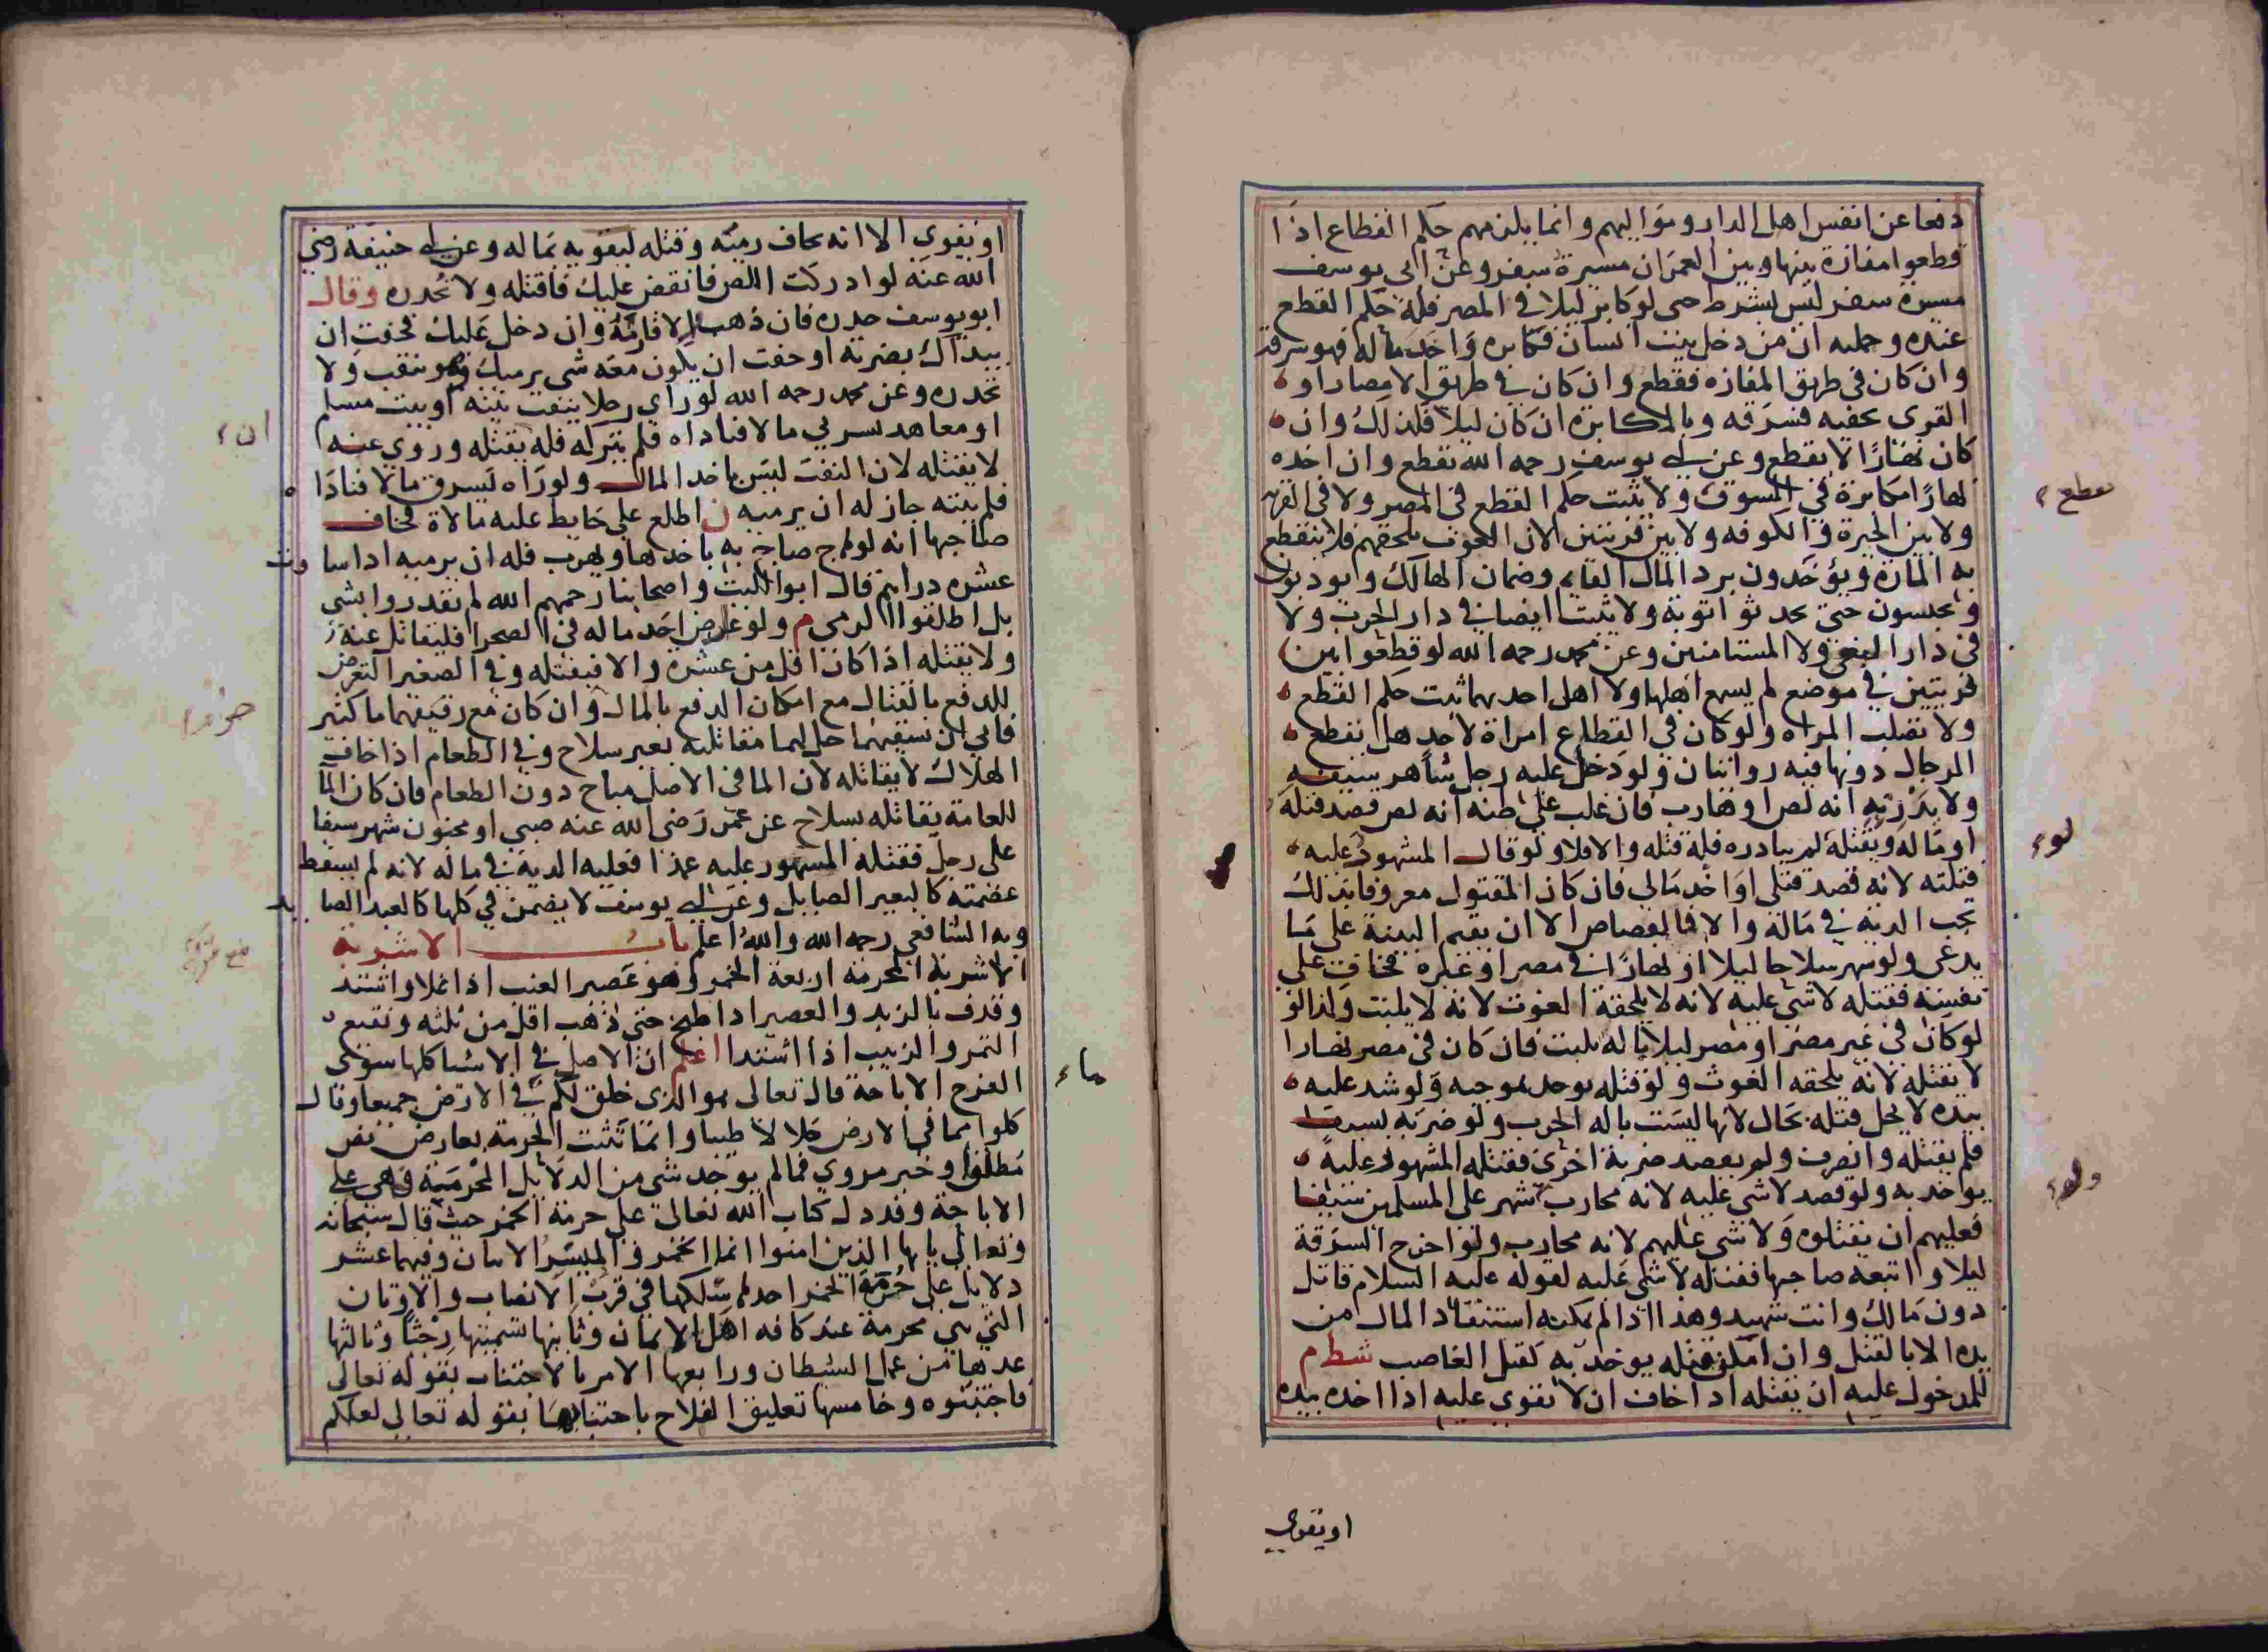 دفعا عن انفس اهل الدار وموا ليهم وانما يلزمهم حكم القطاع اذا
قطعوا مفازة بينها وبين العمران مسيرة سفر وعن ابى يوسف
مسيرة سفر ليس بشرط حتى لو كابر ليلا فى المصر فله حكم القطع
عنده وحمله ان من دخل بيت انسان فكابره واخذ ماله فهو سرقة
وان كان فى طريق المفازه فقطع وان كان في طريق الامصار او
القرى بحفيه فسرقه وبالمكابره ان كان ليلا فكذلك وان
كان نهارًا لا يقطع وعن ابي يوسف رحمه الله يقطع وان اخذه
نهارًا مكابرة في السوق ولا يثبت حكم القطع في المصر ولا فى القرية
ولا بين الحيرة والكوفه ولا بين قريتين لان الغوث يلحقهم فلا ينقطع
به المارة ويؤخذون برد المال القايم وضمان الهالك
ويحبسون حتى يحدثوا توبة ولا يثبت ايضا في دار الحرب ولا
فى دار البغى ولا المستامنين وعن محمد رحمه الله لو قطعوا بين
قريتين في موضع لم يسمع اهلها ولا اهل احديهما ثبت حكم القطع
ولا تصلب المراه ولو كان فى القطاع امراة لاحد هل يقطع
الرجال دونها فيه روايتان ولو دخل عليه رجل شاهر سيفه
ولا يدرى انه لص او هارب فان غلب على ظنه انه لص قصد قتله
او ماله ويقتله لم يبادره فله قتله والا فلا ولو قال المشهود عليه
قتلته لانه قصد قتلى او اخذ مالي فان كان المقتول معروفا بذلك
تجب الدية في ماله والا فالقصاص الا ان يقيم البينة على ما
يدعى ولو شهر سلاحا ليلا او نهارًا في مصر او غيره فخاف على
نفسه فقتله لا شئ عليه لانه لا يلحقه الغوث لانه لا يلبث وكذا لو
لو كان فى غير مصر او مصر ليلا باله تلبث فان كان في مصر نهارا
لا يقتله لانه يلحقه الغوث ولو قتله يوخذ بموجبه ولو شد عليه
بيده لا يحل قتله بحال لانها ليست باله الحرب ولو ضربه بسيف
فلم يقتله وانصرف ولم يقصد ضربة اخرى فقتله المشهود عليه
يواخذ به ولو قصد لا شى عليه لانه محارب شهر على المسلمين سيفا
فعليهم ان يقتلوه ولا شى عليهم لانه محارب ولو اخرج السرقة
ليلا واتبعه صاحبها فقتله لا شى عليه لقوله عليه السلام قاتل
دون مالك وانت شهيد وهذا اذا لم يمكنه استنقاذ المال من
يده الا بالقتل وان امكن فقتله يوخذ به كقتل الغاصب شط م
للمدخول عليه ان يقتله اذا خاف ان لا يقوى عليه اذا اخذه بيده
او يقوى
يقطع
لوء
او يقوى الا انه يخاف رميته وقتله ليفوته بماله وعن ابي حنيفة رضى
الله عنه لو ادركت اللص فانقض عليك فاقتله ولا تحذره وقال
ابو يوسف حذره فان ذهب والا فارمه وان دخل عليك فخفت ان
يبداك بضربة او خفت ان يكون معه شى يرميك وهو ينقب ولا
تحذره وعن محمد رحمه الله لو راى رجلا ينقب بيته او بيت مسلم
او معاهد لسرقي مالا فناداه فلم يتركه فله بقتله وروي عنه
لا يقتله لان النقب ليس باخذ المال ولو راه يسرق مالا فنادا
فلم ينته جاز له ان يرميه ن اطلع على حايط عليه مالاة فخاف
صاحبها انه لو لم صاح به ياخذها ويهرب فله ان يرميه اذا ساوت
عشرة دراهم قال ابو الليث واصحابنا رحمهم الله لم يقدروا بشى
بل اطلقوا الرمي م ولو عارض احد ماله فى الصحرا فليقاتل عنه
ولا يقتله اذا كان اقل من عشرة والا فيقتله وفى الصغير التعرض
للدفع بالقتال مع امكان الدفع بالمال وان كان مع رفيقهما ما كثير
فابى ان يسقيهما حل لهما مقاتلته بغير سلاح وفي الطعام اذا خاف
الهلاك لا يقاتله لان الما فى الاصل مباح دون الطعام فان كان الما
للعامة يقاتله بسلاح عن عمر رضى الله عنه صبى او مجنون شهر سيفا
على رجل فقتله المشهور عليه عمدا فعليه الدية في ماله لانه لم يسقط
عضمته كالبعير الصايل وعن ابي يوسف لا يضمن في كلها كالعبد الصايد
وبه الشافعي رحمه الله والله اعلم باب الاشربة
الاشربة المحرمة اربعة الخمر وهو عصير العنب اذا غلا واشتد
وقذف بالزبد والعصير اذا طبخ حتى ذهب اقل من ثلثه ونقيع
التمر والزبيب اذا اشتدا اعلم ان الاصل في الاشيا كلها سوى
الفرج الاباحة قال تعالى هو الذى خلق لكم ما فى الارض جميعا وقال
كلوا مما في الارض حلالا طيبا وانما تثبت الحرمة بعارض نص
مطلق او خبر مروي فما لم يوجد شى من الدلايل المحرمة فهى على
الاباحة وقد دل كتاب الله تعالى على حرمة الخمر حيث قال سبحانه
وتعالى يايها الذين امنوا انما الخمر والميسر الايتان وفيهما عشر
دلايل على حرمة الخمر احدها سلكها في قرن الانصاب والاوثان
التي هي محرمة عند كافه اهل الايمان وثانيها تسميتها رجسًا وثالثها
عدها من عمل الشيطان ورابعها الامر بالاجتناب بقوله تعالى
فاجتنبوه وخامسها تعليق الفلاح باجتنابها بقوله تعالى لعلكم
ان
ماء